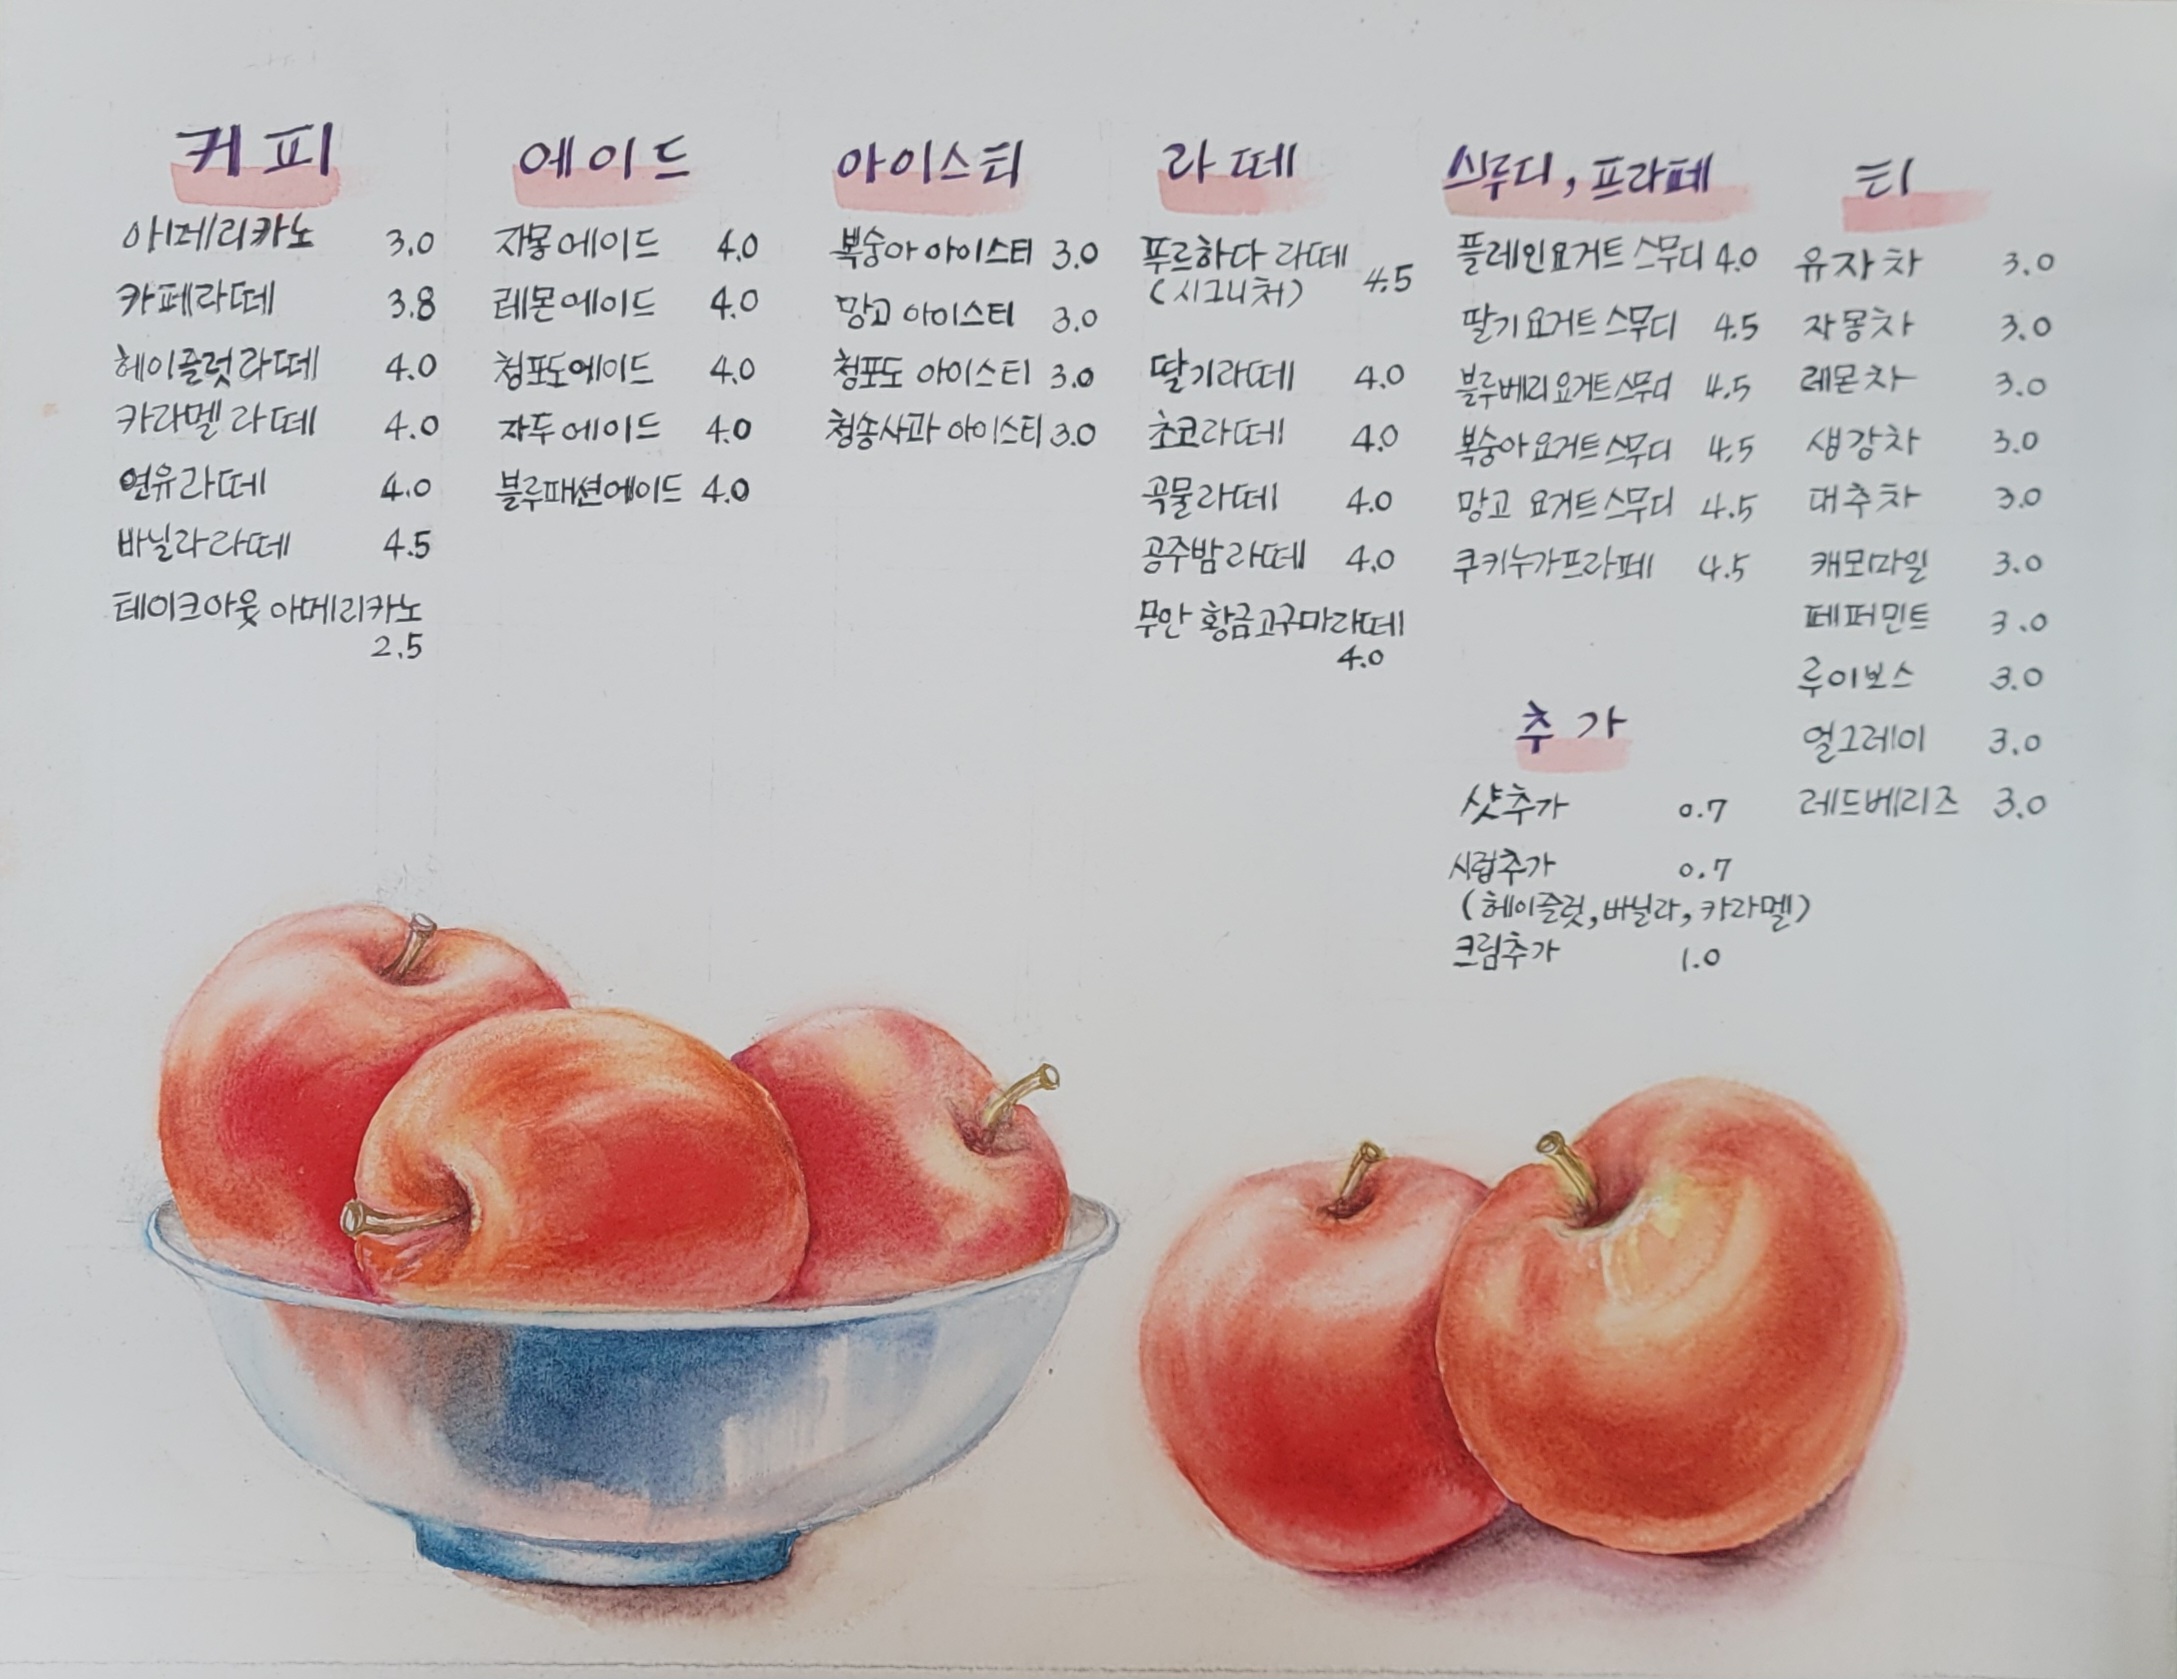 커피
아메리카노 3.0
카페라떼 3.8
헤이즐럿라떼 4.0
카라멜라떼 4.0
연유라떼 4.0
바닐라라떼 4.5
테이크아웃 아메리카노
2.5
에이드
자몽에이드 4.0
레몬에이드 4.0
청포도에이드 4.0
자두에이드 4.0
블루패션에이드 4.0
아이스티
복숭아 아이스티 3.0
망고 아이스티 3.0
청포도 아이스티 3.0
청송사과 아이스티 3.0
라떼
푸르하다 라떼
(시그니처) 4.5
딸기라떼 4.0
초코라떼 4.0
곡물라떼 4.0
공주밤라떼 4.0
무안 황금고구마라떼
4.0
스무디, 프라페
플레인요거트 스무디 4.0
딸기요거트 스무디 4.5
블루베리요거트스무디 4.5
복숭아요거트스무디 4.5
망고 요거트스무디 4.5
쿠키누가프라페 4.5
추가
샷추가 0.7
시럽추가 0.7
(헤이즐럿, 바닐라, 카라멜)
크림추가 1.0
티
유자차 3.0
자몽차 3.0
레몬차 3.0
생강차 3.0
대추차 3.0
캐모마일 3.0
페퍼민트 3.0
루이보스 3.0
얼그레이 3.0
레드베리즈 3.0